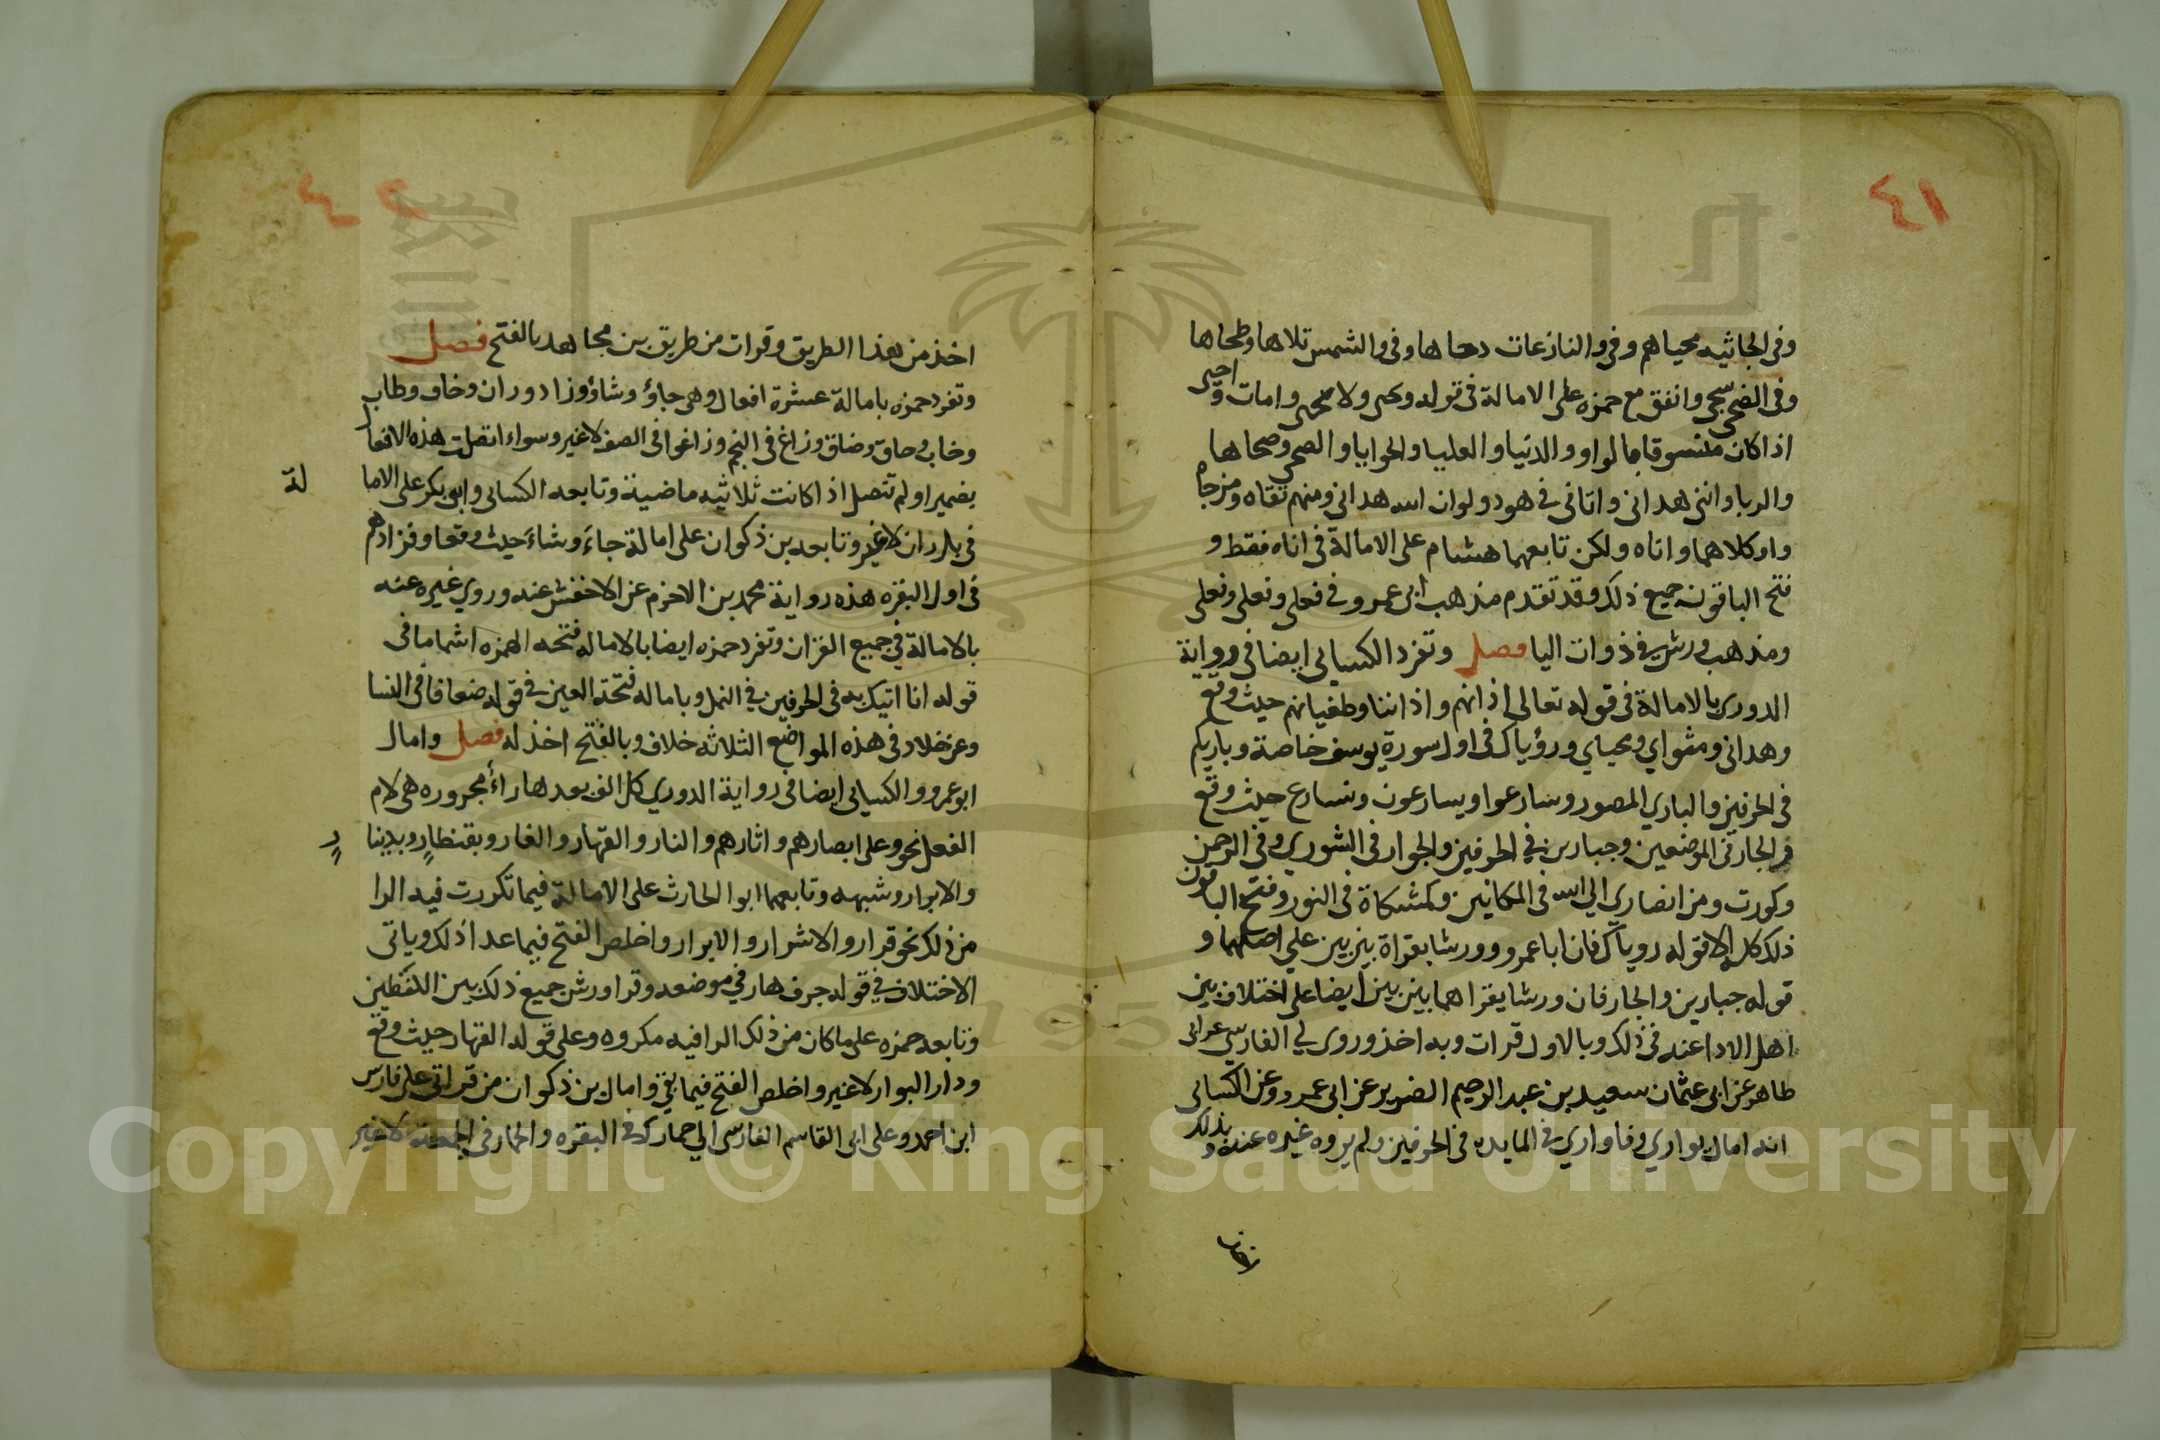 ٤١
وفى الجاثيه محياهم وفى والنازعات دحاها وفى والشمس تلاها وطحاها
وفى الضحى سجى واتفق مع حمزه على الامالة فى قوله ويحيى ولا يحيى وامات واحيى
اذا كان منسوقا بالواو والدنيا والعليا والحوايا والضحى وضحاها
والربا وانني هدانى واتانى فى هود ولو ان الله هدانى ومنهم تقاه ومزجاه
واو كلاهما واناه ولكن تابعهما هشام على الامالة فى اناه فقط و
فتح الباقون جميع ذلك وقد تقدم مذهب ابى عمرو فى فعلى وفعلى وفعلى
ومذهب ورش فى ذوات اليا فصل وتفرد الكسايى ايضا فى رواية
الدورى بالامالة فى قوله تعالى اذانهم واذاننا وطغيانهم حيث وقع
وهداى ومثواي ومحياي ورؤياك فى اول سورة يوسف خاصة وباريكم
فى الحرفين والباري المصور وسارعوا ويسارعون ونسارع حيث وقع
والجار فى الموضعين وجبارين فى الحرفين والجوار فى الشوري وفى الرحمن
وكورت ومن انصاري الى الله فى المكانين وكمشكاة فى النور وفتح الباقون
ذلك كله الا قوله روياك فان ابا عمرو وورشا يقراة بين بين علي اصلهما و
قوله جبارين والجار فان ورشا يقراهما بين بين ايضا على اختلاف بين
اهل الادا عنه فى ذلك وبالاول قرات وبه اخذ وروى لي الفارسي عن ابى
طاهر عن ابى عثمان سعيد بن عبد الرحيم الضرير عن ابى عمرو وعن الكسائى
انه امال يواري وفاواري فى المايده فى الحرفين ولم يروه غيره عنه وبذلك
٤٢
اخذ من هذا الطريق وقرات من طريق بن مجاهد بالفتح فصل
وتفرد حمزه بامالة عشرة افعال وهى جاؤ وشاؤ وزاد وران وخاف وطاب
وخاب وحاق وضاق وزاغ فى النجم وزاغوا فى الصف لا غير وسواء اتصلت هذه الافعال
بضمير او لم تتصل اذا كانت ثلاثيه ماضية وتابعه الكسائى وابى بكر على الاما
لة
فى بل ران لا غير وتابعه بن ذكوان على امالة جاءَ وشاءَ حيث وقعا وفزادهم
فى اول البقره هذه رواية محمد بن الاخرم عن الاخفش عنه وروي غيره عنه
بالامالة في جميع القران وتفرد حمزه ايضا بالاماله فتحه الهمزه اشماما فى
قوله انا اتيك به فى الحرفين فى النمل وباماله فتحة العين فى قوله ضعافا فى النسا
وعن خلاد فى هذه المواضع الثلاثه خلاف وبالفتح اخذ له فصل وامال
ابو عمرو والكسايى ايضا فى رواية الدوري كل الف بعدها راءٌ مجروره هى لام
الفعل نحو وعلى ابصارهم واثارهم والنار والقهار والغار وبقنطارٍ وبدينا
رٍ
والابرار وشبهه وتابعهما ابو الحارث على الامالة فيما تكررت فيه الرا
من ذلك نحو قرار والاشرار والابرار واخلص الفتح فيما عدا ذلك وياتى
الاختلاف في قوله جرف هار في موضعه وقرا ورش جميع ذلك بين اللفظين
وتابعه حمزه على ما كان من ذلك الرا فيه مكروه وعلى قوله القهار حيث وقع
ودار البوار لا غير واخلص الفتح فيما بقي وامال بن ذكوان من قراتى على فارس
ابن احمد وعلى ابى القاسم الفارسى الي حمارك فى البقره والحمار فى الجمعة لا غير
Copyright © King Saud University